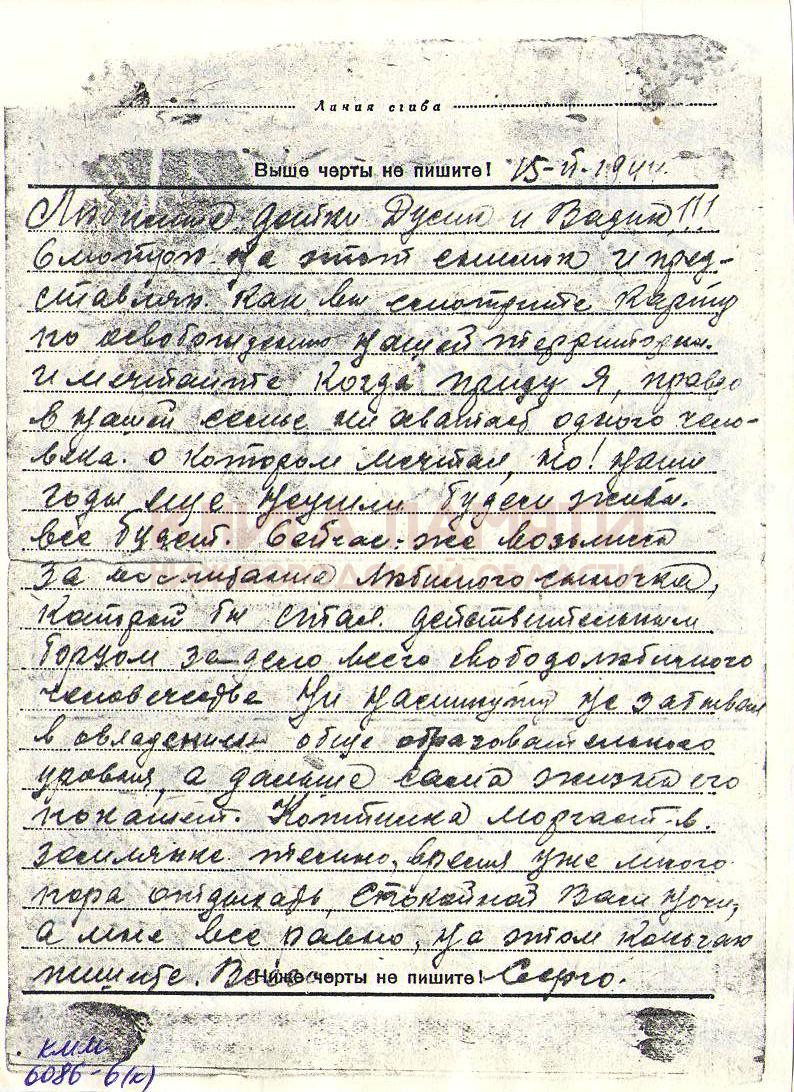 Линия сгиба
Выше черты не пишите! 15-II-1944.
Любимые детки Дусик и Вадик!!!
Смотрю на этот снимок и пред-
ставляю как вы смотрите карту
по освобождению нашей территории.
и мечтаите когда приду я, правда
в нашей семье не хватает одного чело-
века. о котором мечтал, но! наши
годы еще неушли будем живы.
все будет. Сейчас-же возьмись
за воспитание любимого сыночка,
который бы стал действительным
борцом за дело всего свободолюбивого
человечества ни наминуту не забывай
в овладении обще образовательного
уровня, а дальше сама жизнь его
покажет. Коптилка моргает в.
землянке тесно, время уже много
пора отдыхать, спокойной Вам ночи,
а мне все равно, на этом кончаю
пишите. Ваш Серго.
Ниже черты не пишите!
КНИГА ПАМЯТИ
ОБЛАСТИ
КММ
6086-6(к)